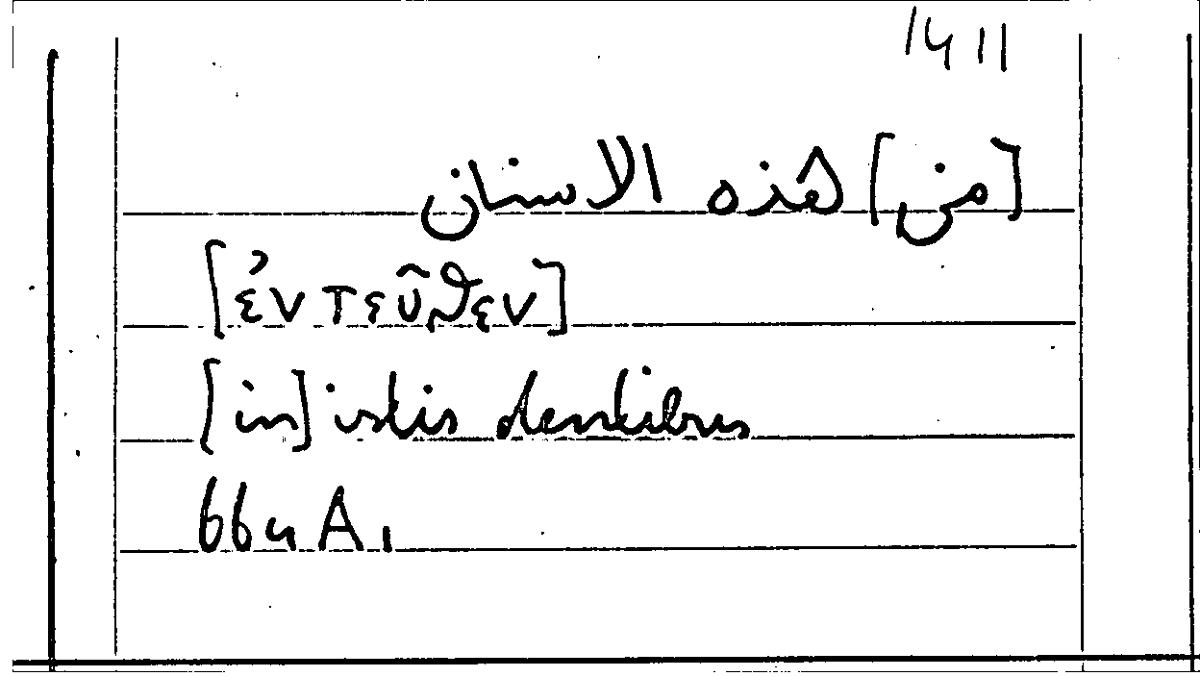 1411
[من] هذه الاسنان
[ἐντεῦθεν]
[in] istis dentibus
664 A 1